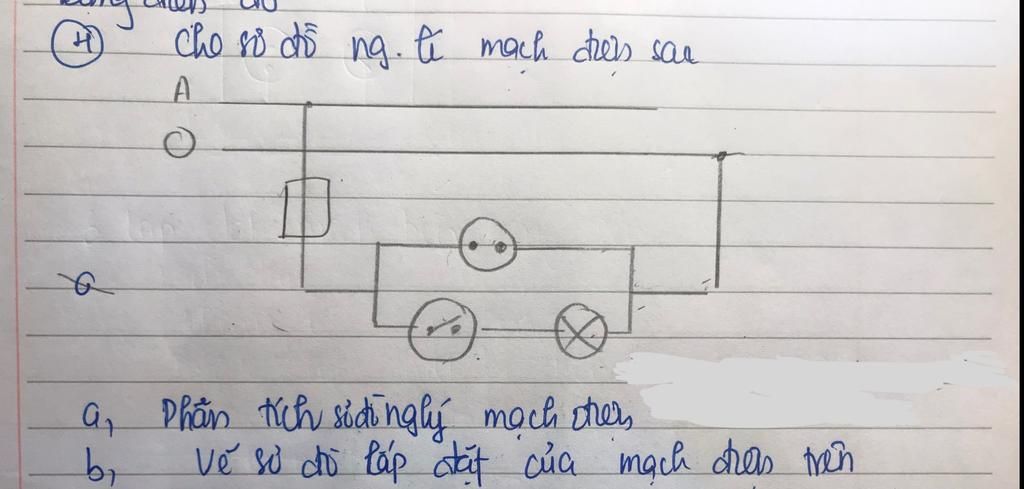 4 Cho sơ đồ ng. lí mạch điện sau
A
O
a, Phân tích sơ đồ nglý mạch điện
b, Vẽ sơ đồ lắp đặt của mạch điện trên